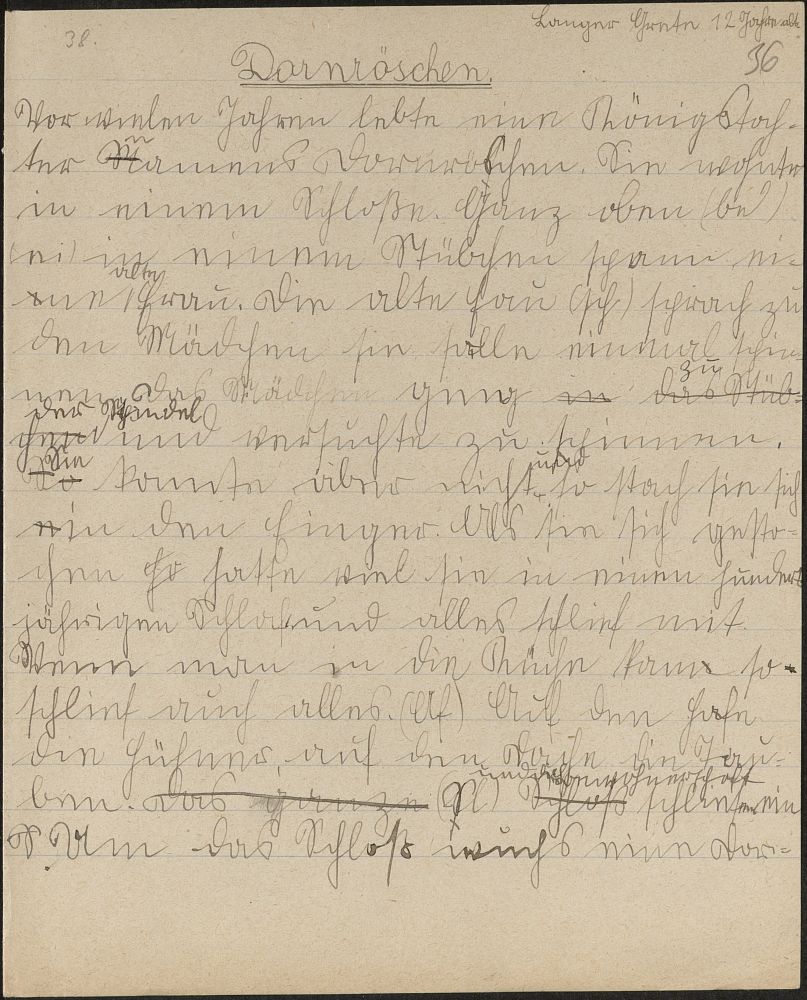 38.
Langer Grete 12 Jahre alt.
36
Dornröschen.
Vor vielen Jahren lebte eine Königstoch-
ter Namens Dornröschen. Sie wohnte
in einem Schloße. Ganz oben (be)
(ei) in einem Stübchen spann ei-
alte
ne Frau. Die alte Frau (sch) sprach zu
den Mädchen sie solle einmal spin-
nen. Das Mädchen ging in das Stüb-
zu
der Spindel
chen und versuchte zu spinnen.
Sie und
So konnte aber nicht, so stach sie sich
in den Finger. Als sie sich gesto-
chen hatte viel sie in einen hundert
jährigen Schlaf und alles schlief mit.
Wenn man in die Küche kam so
schlief auch alles. (Af) Auf den Hofe
die Hühner, auf den Dache die Tau-
ben. Das ganze Schloß schlief ein
Um das Schloß wuchs eine Dor-